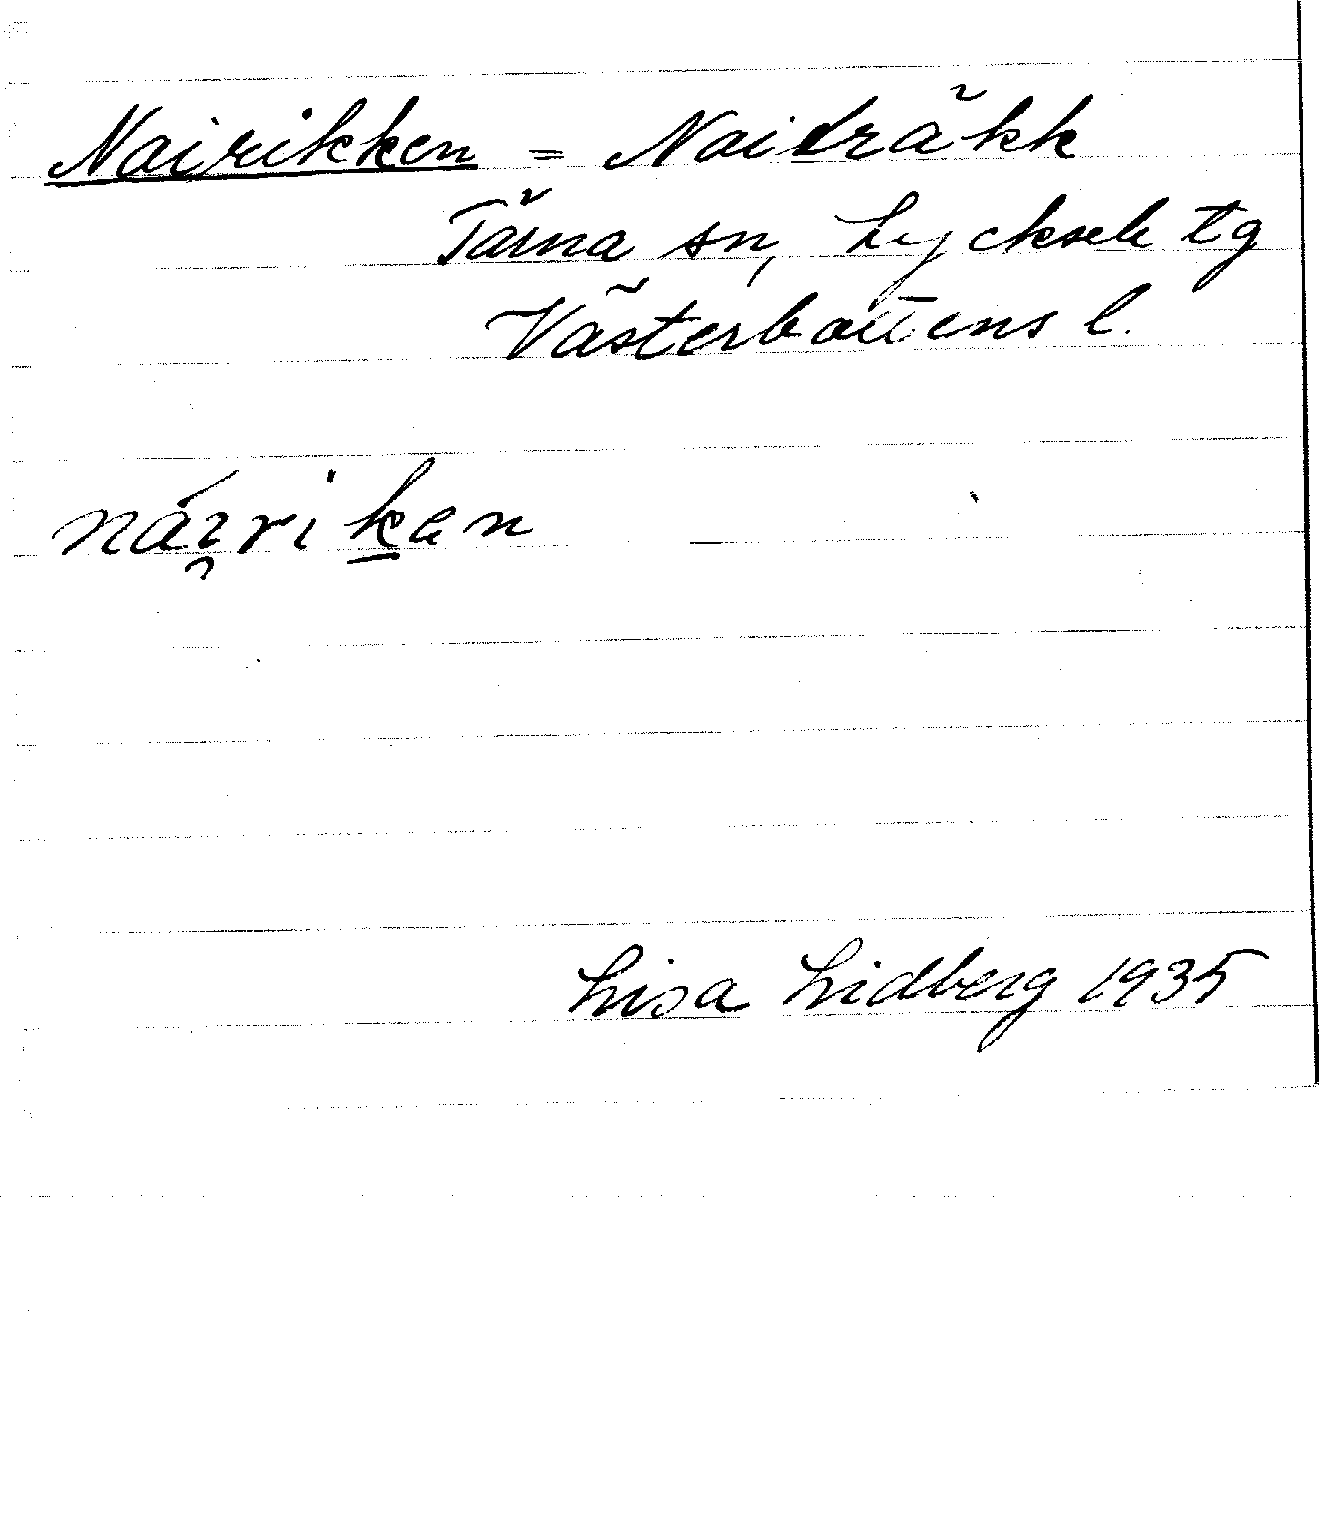 Nairikken = Naidräkk
Tärna sn, Lycksele tg
Västerbottens l.
nái̯riken
Lisa Lidberg 1935